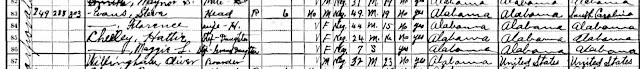 82 Maynor S. M 31 M 19 No yes Alabama Alabama Alabama
83 249 288 303 Evans, Stora Head R 6 No M Neg 49 M 19 No yes Alabama Alabama South Carolina
84 Florence Wife-H. V F Neg 44 M 15 No yes Alabama Alabama Alabama
85 Hattie Step-Daughter V F Neg 24 M No yes Alabama Alabama Alabama
86 Maggie L. Step-Grand Daughter V F Neg 7 S yes Alabama Alabama Alabama
87 Willingham Oliver Boarder M Neg 32 M 23 No yes Alabama United States United States